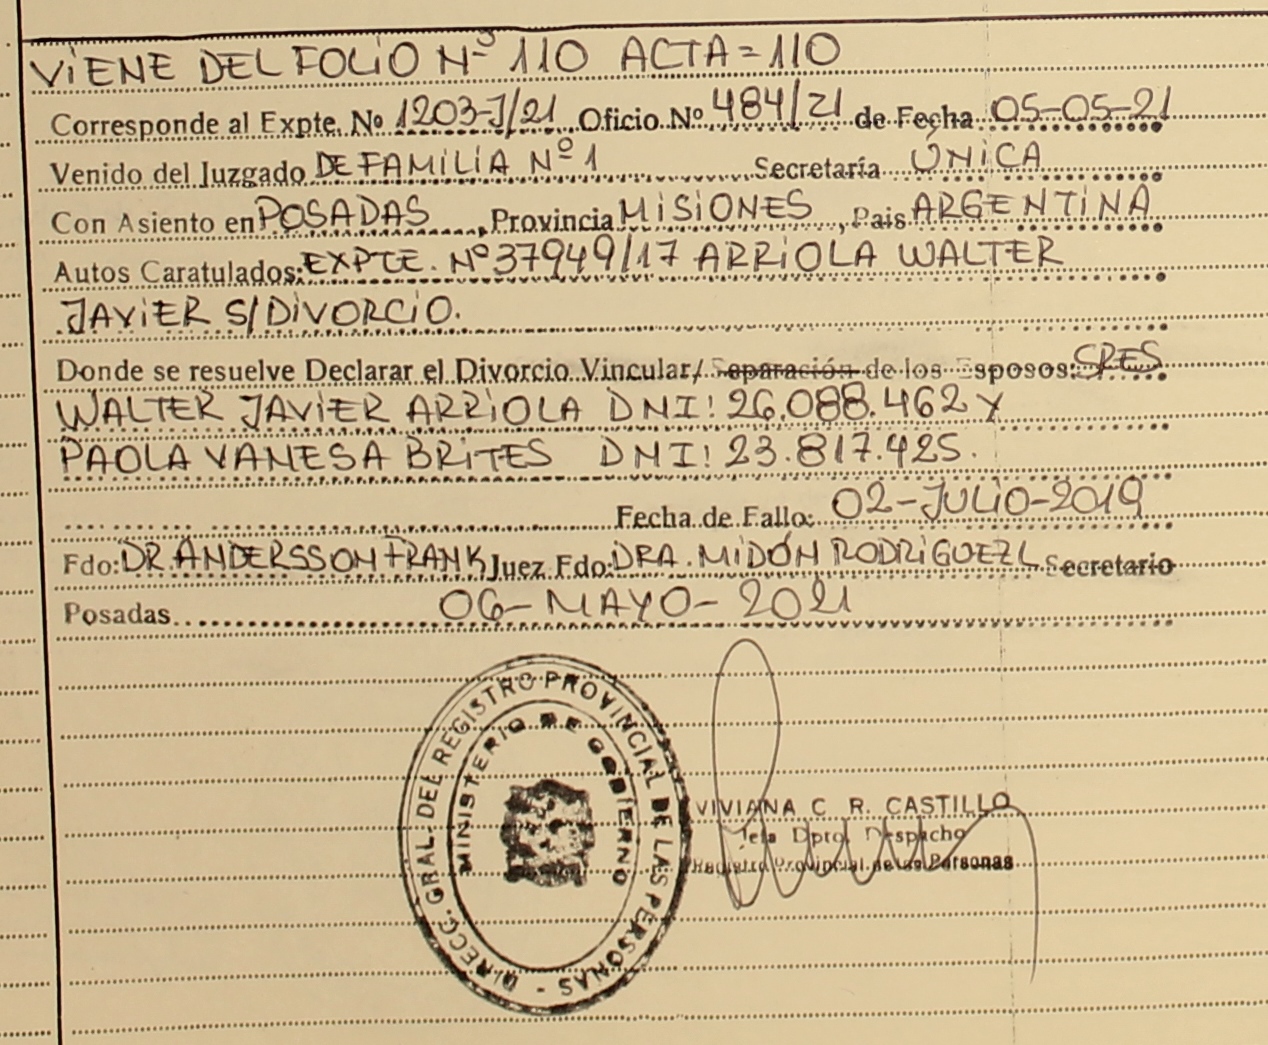 VIENE DEL FOLIO Nº 110 ACTA=110
Corresponde al Expte. Nº 1203-J/21 Oficio Nº 484/21 de Fecha 05-05-21
Venido del Juzgado DE FAMILIA Nº 1 Secretaría ÚNICA
Con Asiento en POSADAS, Provincia MISIONES, Pais ARGENTINA
Autos Caratulados: EXPTE. Nº 37949/17 ARRIOLA WALTER
JAVIER S/DIVORCIO.
Donde se resuelve Declarar el Divorcio Vincular/ Separación de los Esposos: SRES
WALTER JAVIER ARRIOLA DNI: 26.088.462 Y
PAOLA VANESA BRITES DNI: 23.817.425.
Fecha de Fallo: 02-JULIO-2019
Fdo: DR. ANDERSSON FRANK Juez Fdo: DRA. MIDÓN RODRIGUEZ L Secretario
Posadas 06-MAYO-2021
DIRECC. GRAL. DEL REGISTRO PROVINCIAL DE LAS PERSONAS -
MINISTERIO DE GOBIERNO
VIVIANA C. R. CASTILLO
Jefa Dpto. Despacho
Registro Provincial de las Personas